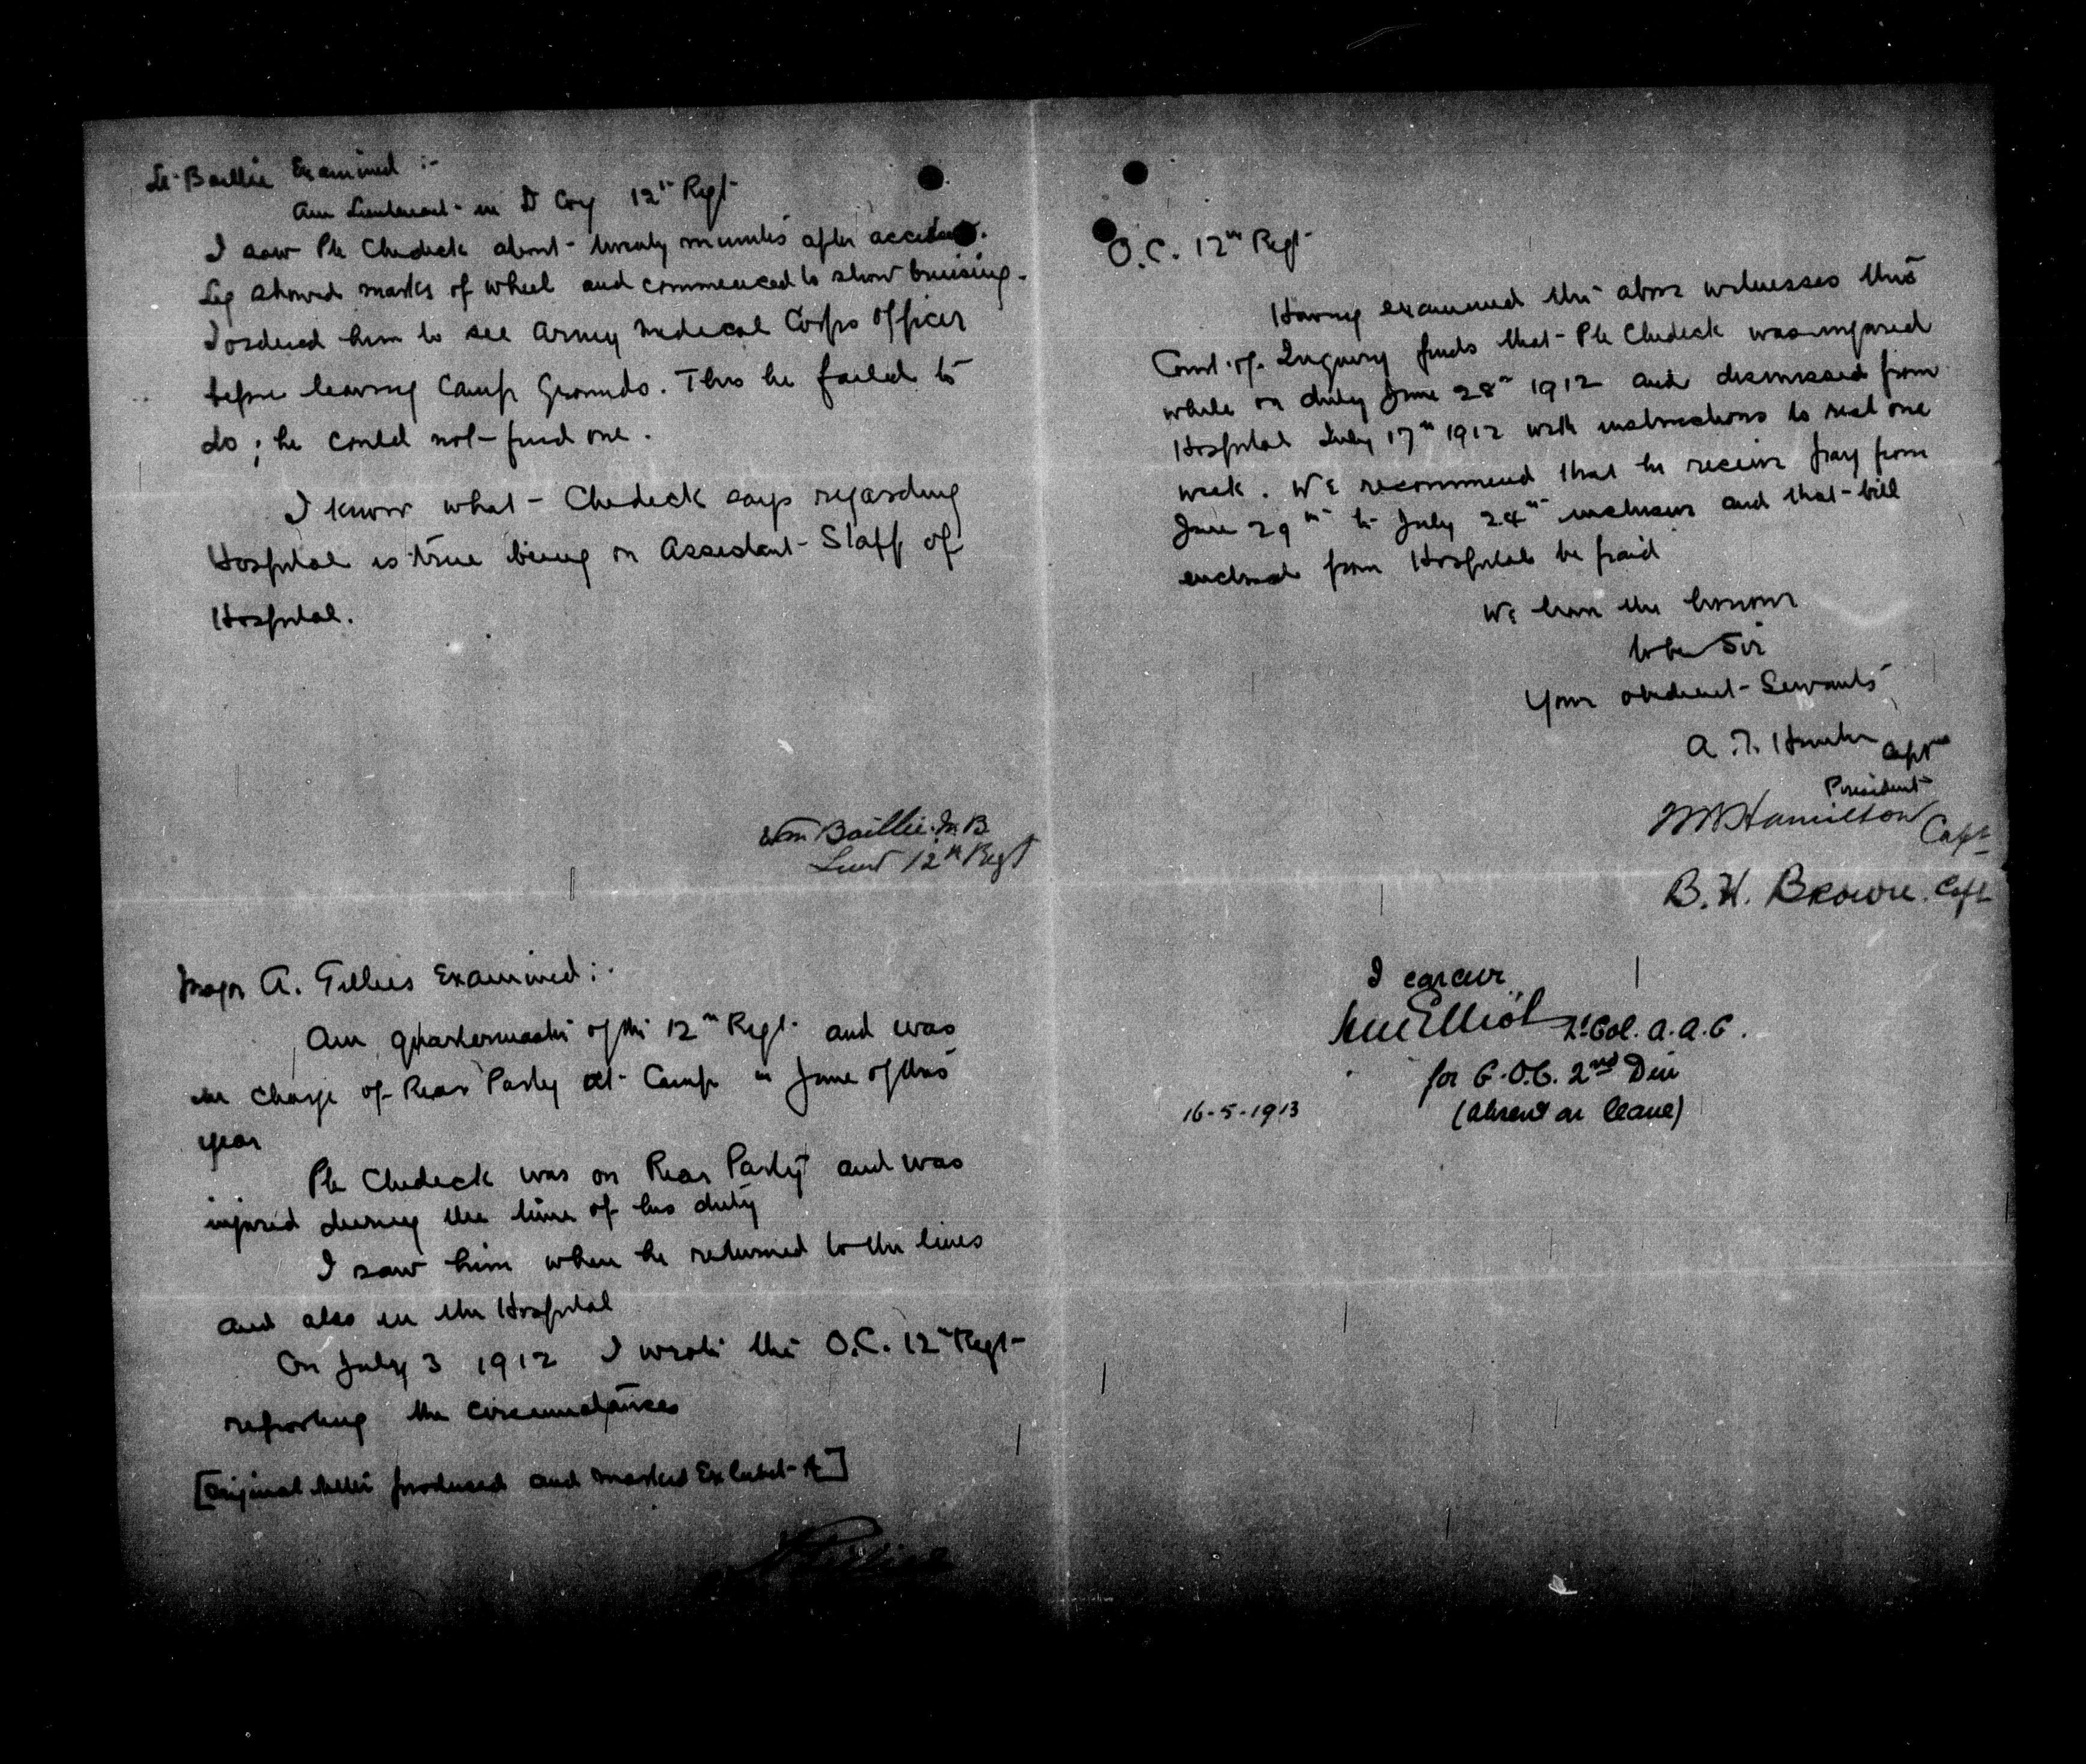 Lt. Baillie Examined :-
Am Lieutenant in D Coy 12th Regt
I saw Pte Chedeck about twenty minutes after accident.
Leg showed marks of wheel and commenced to show bruising.
I ordered him to see Army Medical Corps Officer
before leaving Camp Grounds. This he failed to
do; he could not find one.
I know what Chedeck says regarding
Hospital is true being on Assistant Staff of
Hospital.
Wm Baillie. M.B.
Lieut 12th Regt
Major A. Gillies Examined :-
Am quartermaster of the 12th Regt. and was
in charge of Rear Party at Camp in June of this
year
Pte Chedeck was on Rear Party and was
injured during the time of his duty
I saw him when he returned to the lines
and also in the Hospital
On July 3 1912 I wrote the O.C. 12th Regt
reporting the circumstances
[Original letter produced and marked Exhibit A]
O.C. 12th Regt
Having examined the above witnesses this
Court of Inquiry finds that Pte Chedeck was injured
while on duty June 28th 1912 and dismissed from
Hospital July 17th 1912 with instructions to rest one
week. We recommend that he receive pay from
June 29th to July 24th inclusive and that bill
enclosed from Hospital be paid
We have the honour
to be Sir
Your obedient Servants
A. T. Hunter Capt
President
Hamilton Capt
B. H. Brown. Capt
I concur
Elliot Lt. Col. A.A.G.
for G.O.C. 2nd Div
16-5-1913
(absent on leave)